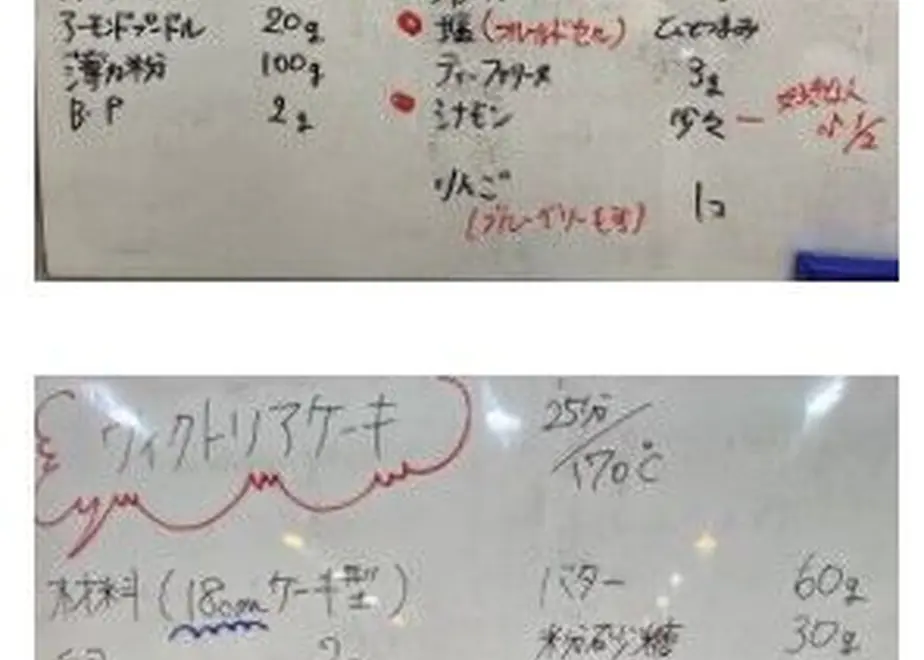 アーモンドプードル 20g
薄力粉 100g
B・P 2g
塩(フルールドセル) ひとつまみ
ティーファクリーヌ 3g
シナモン 少々 — 好きな人 小1/2
りんご 1コ
(ブルーベリーも可)
ヴィクトリアケーキ
25分/170℃
材料(18cmケーキ型)
バター 60g
粉砂糖 30g